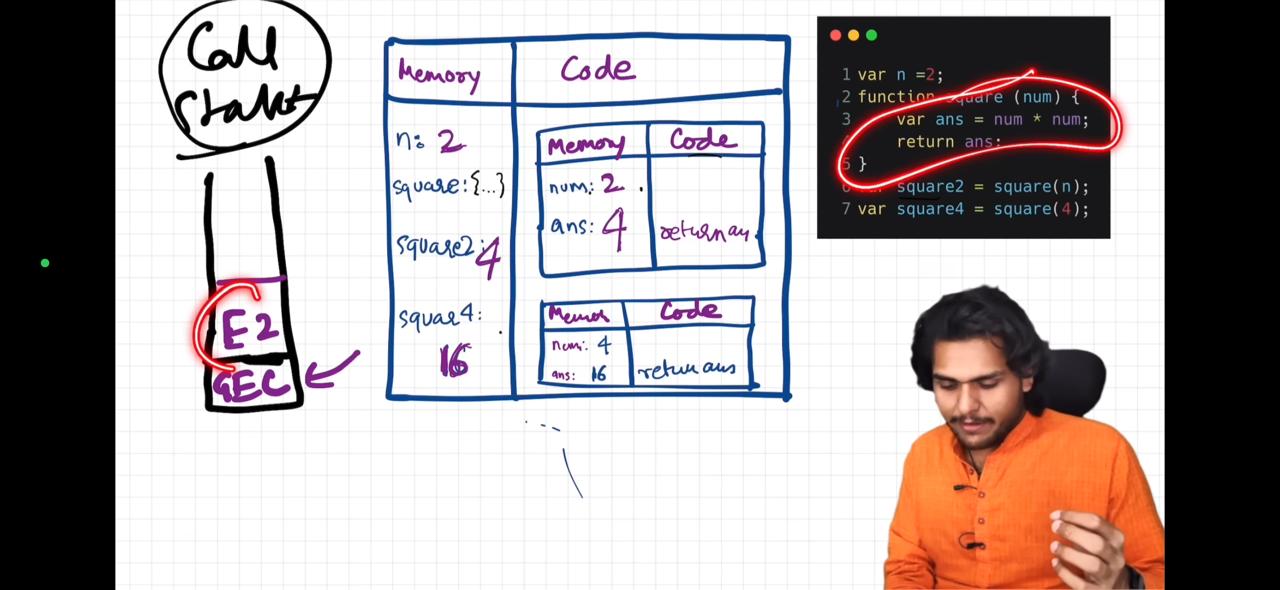 Call
Stack
E2
GEC
Memory
Code
n: 2
square: {...}
square2: 4
squar4:
16
Memory
Code
num: 2
ans: 4
return an
Code
num: 4
ans: 16
return ans
1 var n =2;
2 function square (num) {
3 var ans = num * num;
return ans;
5 }
6 var square2 = square(n);
7 var square4 = square(4);